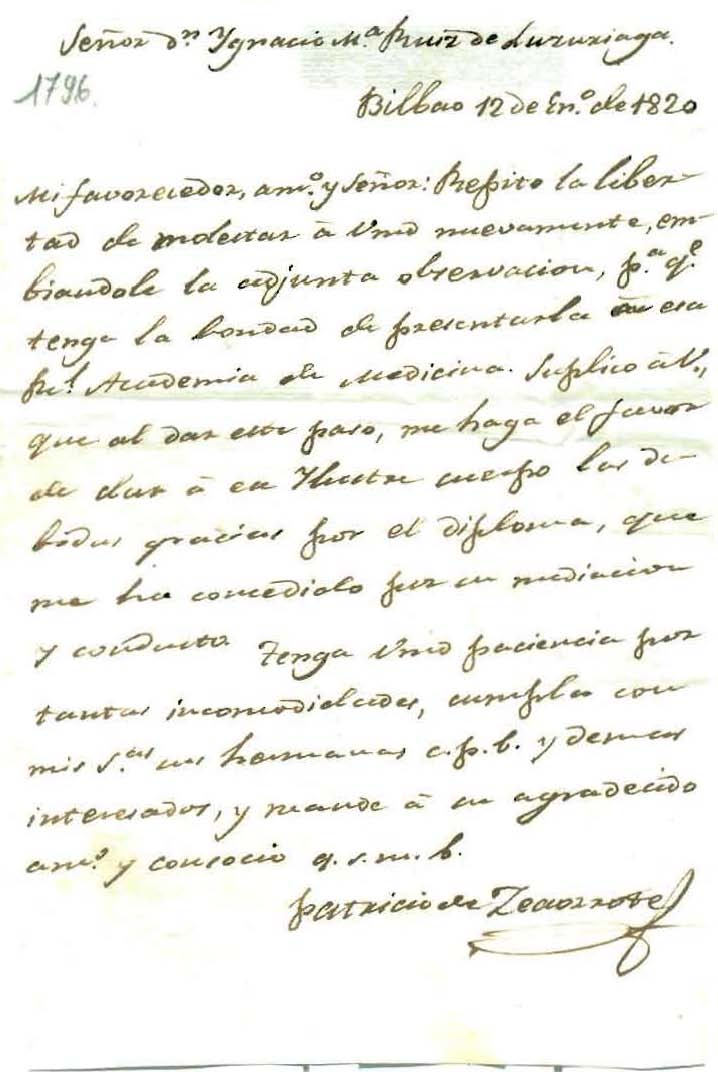 Señor dn Ygnacio Ma Ruiz de Luzuriaga.
1796.
Bilbao 12 de Eno de 1820
Mi favorecedor, amo y Señor: Repito la liber-
tad de molestar à Vmd nuevamente, em-
biandole la adjunta observacion, pa qe
tenga la bondad de presentarla à esa
Rl Academia de Medicina. Suplico à V.,
que al dar este paso, me haga el favor
de dar à ese Ylustre cuerpo las de-
bidas gracias por el diploma, que
me ha concedido por su mediacion
y conducto. Tenga Vmd paciencia por
tantas incomodidades, cumpla con
mis Sras sus hermanas c.p.b. y demas
interesados, y mande à su agradecido
amo y consocio q.s.m.b.
Patricio de Zearrote